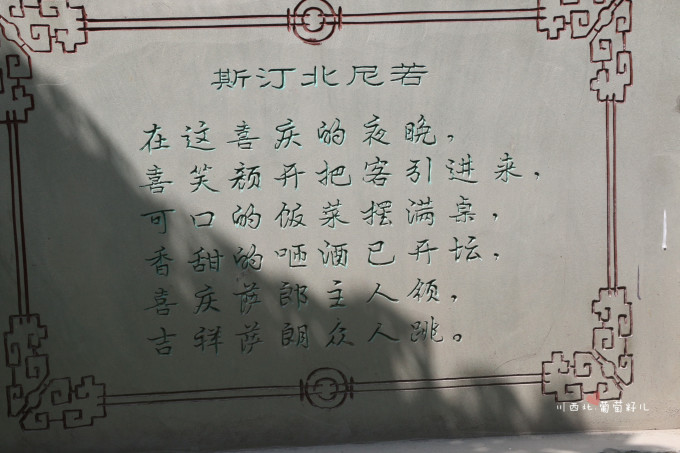 斯汀北尼若
在这喜庆的夜晚，
喜笑颜开把客引进来，
可口的饭菜摆满桌，
香甜的咂酒已开坛，
喜庆萨郎主人领，
吉祥萨朗众人跳。
川西北.葡萄籽儿